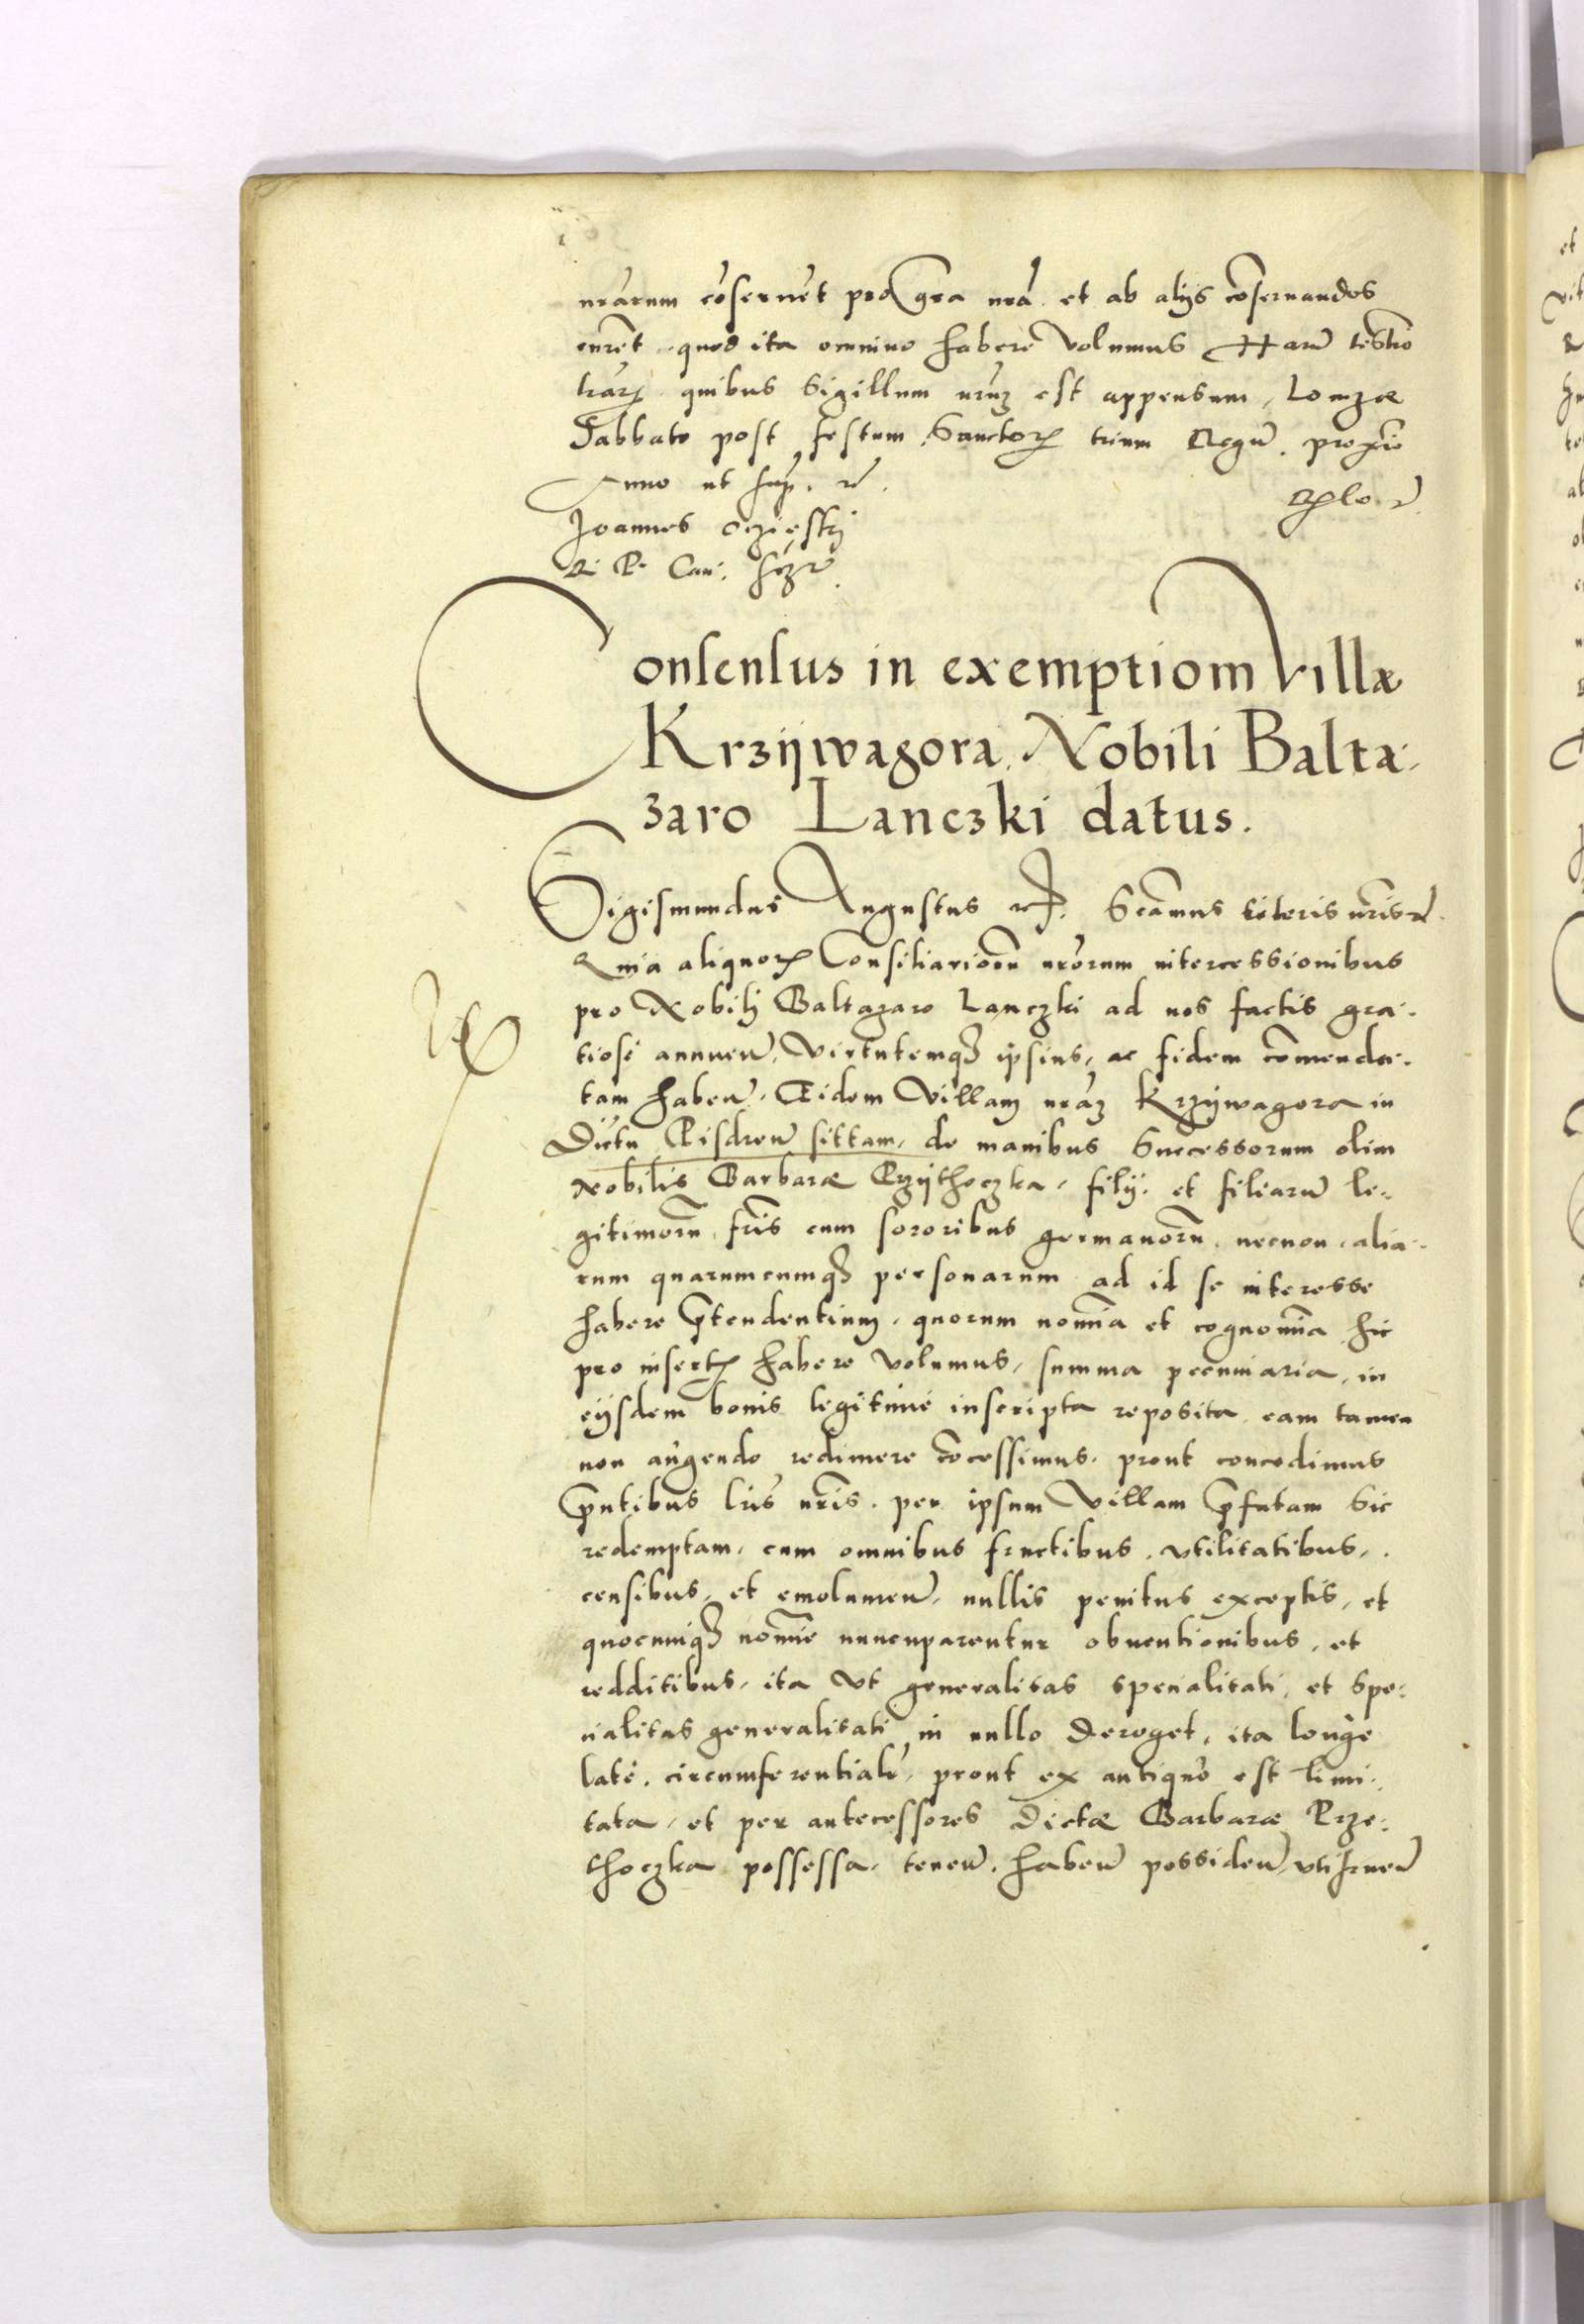 nrarum cõseruẽt pro gra nra et ab alijs cõseruandos
curẽt. quod ita omnino habere volumus Harũ testio
lrarꝝ quibus Sigillum nrũ est appensum, Lomzæ
Sabbato post festum Sanctorꝝ trium Regũ. proxio
Anno ut sup.
Joannes Ocziesky
R. P. Can.
Consensus in exemptiom villæ
Krzijwagora, Nobili Balta:
zaro Lanczki datus.
Sigismundus Augustus Scãmus literis nris
Quia aliquorꝝ Consiliariorũ nrorum intercessionibus
pro Nobili Baltazaro Lanczki ad nos factis gra:
tiosè annuen̄. virtutemqȝ ipsius, ac fidem cõmenda:
tam haben̄. Eidem Villam nram Krzijwagora in
Dictu Pisdren̄ sittam, de manibus Successorum olim
Nobilis Barbaræ Przijthoczka, filij. et filiarũ le:
gitimorũ, fris cum sororibus germanorũ. necnon. alia:
rum quarumcumqȝ personarum ad id se interesse
habere p̄tendentium, quorum noĩa et cognoĩa hic
pro insertꝭ habere volumus, summa pecuniaria, in
eijsdem bonis legitimè inscripta reposita, eam tamen
non augendo redimere cõcessimus, prout concedimus
p̄ntibus lris nris. per ipsum Villam p̄fatam Sic
redemptam, cum omnibus fructibus, vtilitatibus,
censibus, et emolumen̄, nullis penitus exceptis, et
quocumqȝ noĩe nuncuparentur obuentionibus, et
redditibus, ita vt generalitas specialitati, et Spe:
cialitas generalitati in nullo Deroget, ita longè
latè. circumferentialr̃, prout ex antiquo est limi:
tata, et per antecessores Dictæ Barbaræ Prze:
thoczka possessa, tenen̄. haben̄ possiden̄ vtifruen̄